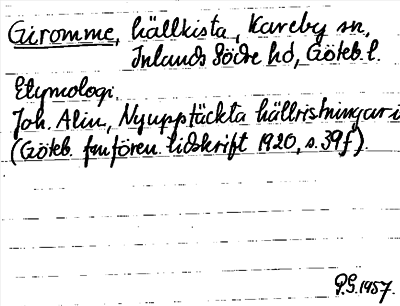 Giromme, hällkista, Kareby sn,
Inlands Södre hd, Göteb. l.
Etymologi.
Joh. Alin, Nyupptäckta hällristningar i
(Göteb. fmfören. tidskrift 1920, s. 39 f).
G.G. 1957.